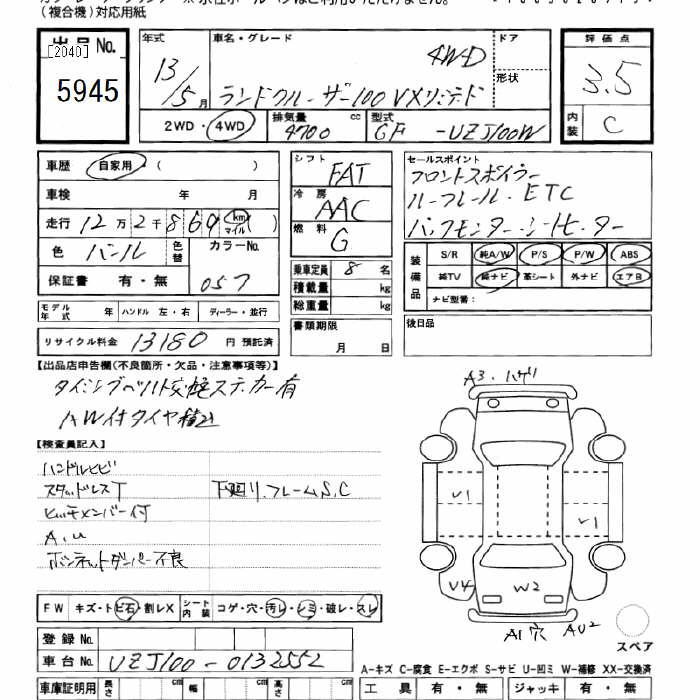 (複合機)対応用紙
出品No.
[2040]
5945
年式 車名・グレード ドア
13/5月 ランドクルーザー100 VXリミテッド 4WD
形状
2WD・4WD 排気量 4700 cc 型式 GF -UZJ100W
評価点
3.5
内装 C
車歴 自家用・( )
車検 年 月
走行 12万2千869 km マイル ( )
色 パール 色替 カラーNo.
保証書 有・無 057
モデル年式 年 ハンドル 左・右 ディーラー・並行
リサイクル料金 13180 円 預託済
シフト FAT
冷房 AAC
燃料 G
乗車定員 8 名
積載量 kg
総重量 kg
書類期限
月 日
セールスポイント
フロントスポイラー
ルーフレール・ETC
バックモニター・シートヒーター
装備品 S/R 純A/W P/S P/W ABS
純TV 純ナビ 革シート 外ナビ エアB
ナビ型番:
後日品
【出品店申告欄(不良箇所・欠品・注意事項等)】
タイミングベルト交換ステッカー有
AW付タイヤ積込
【検査員記入】
ハンドルヒビ
スタッドレスT 下廻り、フレームS,C
ヒッチメンバー付
A,U
ボンネットダンパー不良
FW キズ・トビ石・割レX シート内装 コゲ・穴・汚レ・シミ・破レ・スレ
登録No.
車台No. UZJ100-0132552
車庫証明用 長さ cm 幅 cm 高さ cm
A3・ハゲ
U1
U1
U4
W2
A1 穴 AU2
スペア
A-キズ C-腐食 E-エクボ S-サビ U-凹ミ W-補修 XX-交換済
工具 有・無 ジャッキ 有・無